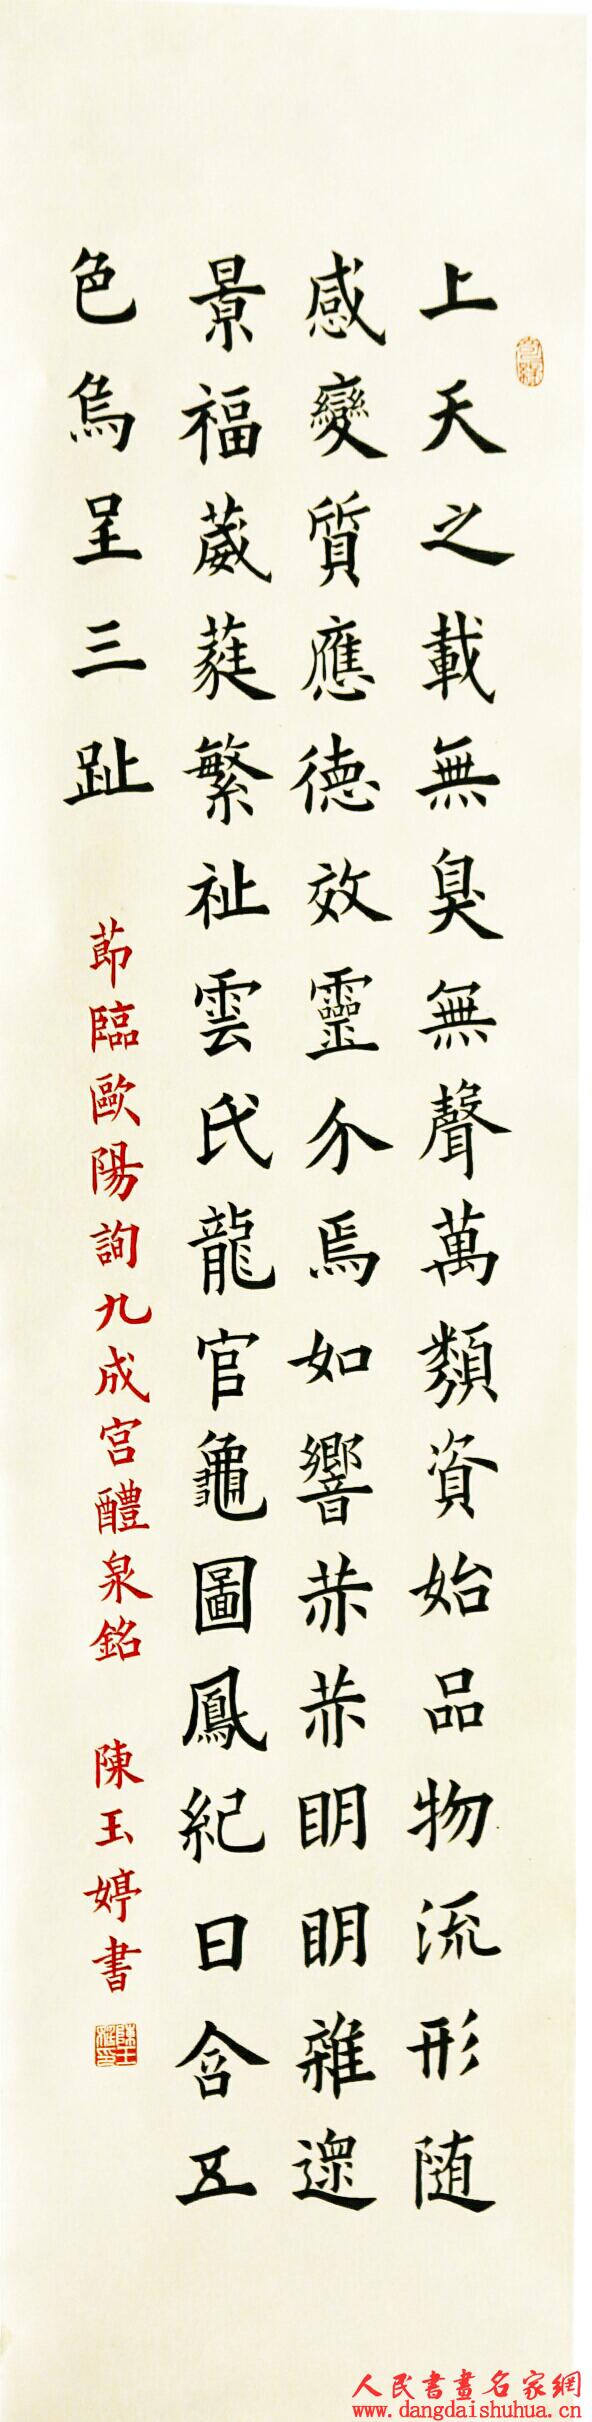 上天之載無臭無聲萬類資始品物流形随
感變質應德效靈介焉如響赫赫明明雜遝
景福葳蕤繁祉雲氏龍官龜圖鳳紀日含五
色烏呈三趾
莭臨歐陽詢九成宮醴泉銘 陳玉婷書
人民書畫名家網
www.dangdaishuhua.cn